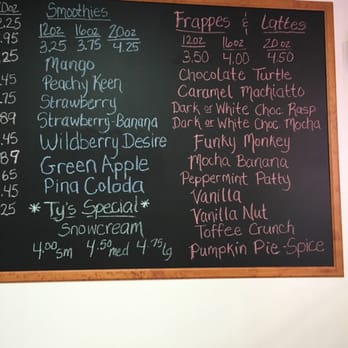 20oz
.25
.95
.25
2.25
.75
.89
.45
.89
.65
.45
.25
Smoothies
12oz 16oz 20oz
3.25 3.75 4.25
Mango
Peachy Keen
Strawberry
Strawberry-Banana
Wildberry Desire
Green Apple
Pina Colada
*Ty's Special*
Snowcream
4.00 sm 4.50 med 4.75 lg
Frappes & Lattes
12oz 16oz 20oz
3.50 4.00 4.50
Chocolate Turtle
Caramel Machiatto
Dark or White Choc Rasp
Dark or White Choc Mocha
Funky Monkey
Mocha Banana
Peppermint Patty
Vanilla
Vanilla Nut
Toffee Crunch
Pumpkin Pie-Spice